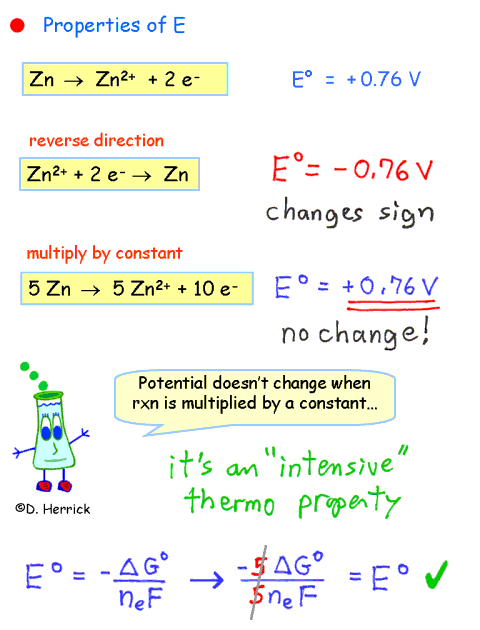 Properties of E
Zn → Zn²⁺ + 2 e⁻
E° = +0.76 V
reverse direction
Zn²⁺ + 2 e⁻ → Zn
E° = -0.76 V
changes sign
multiply by constant
5 Zn → 5 Zn²⁺ + 10 e⁻
E° = +0.76 V
no change!
Potential doesn't change when
rxn is multiplied by a constant...
it's an "intensive"
thermo property
©D. Herrick
E° = -ΔG°/nₑF → -5ΔG°/5nₑF = E° ✓